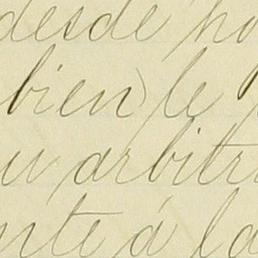 desde ho
bien) le
su arbitra
nte á la